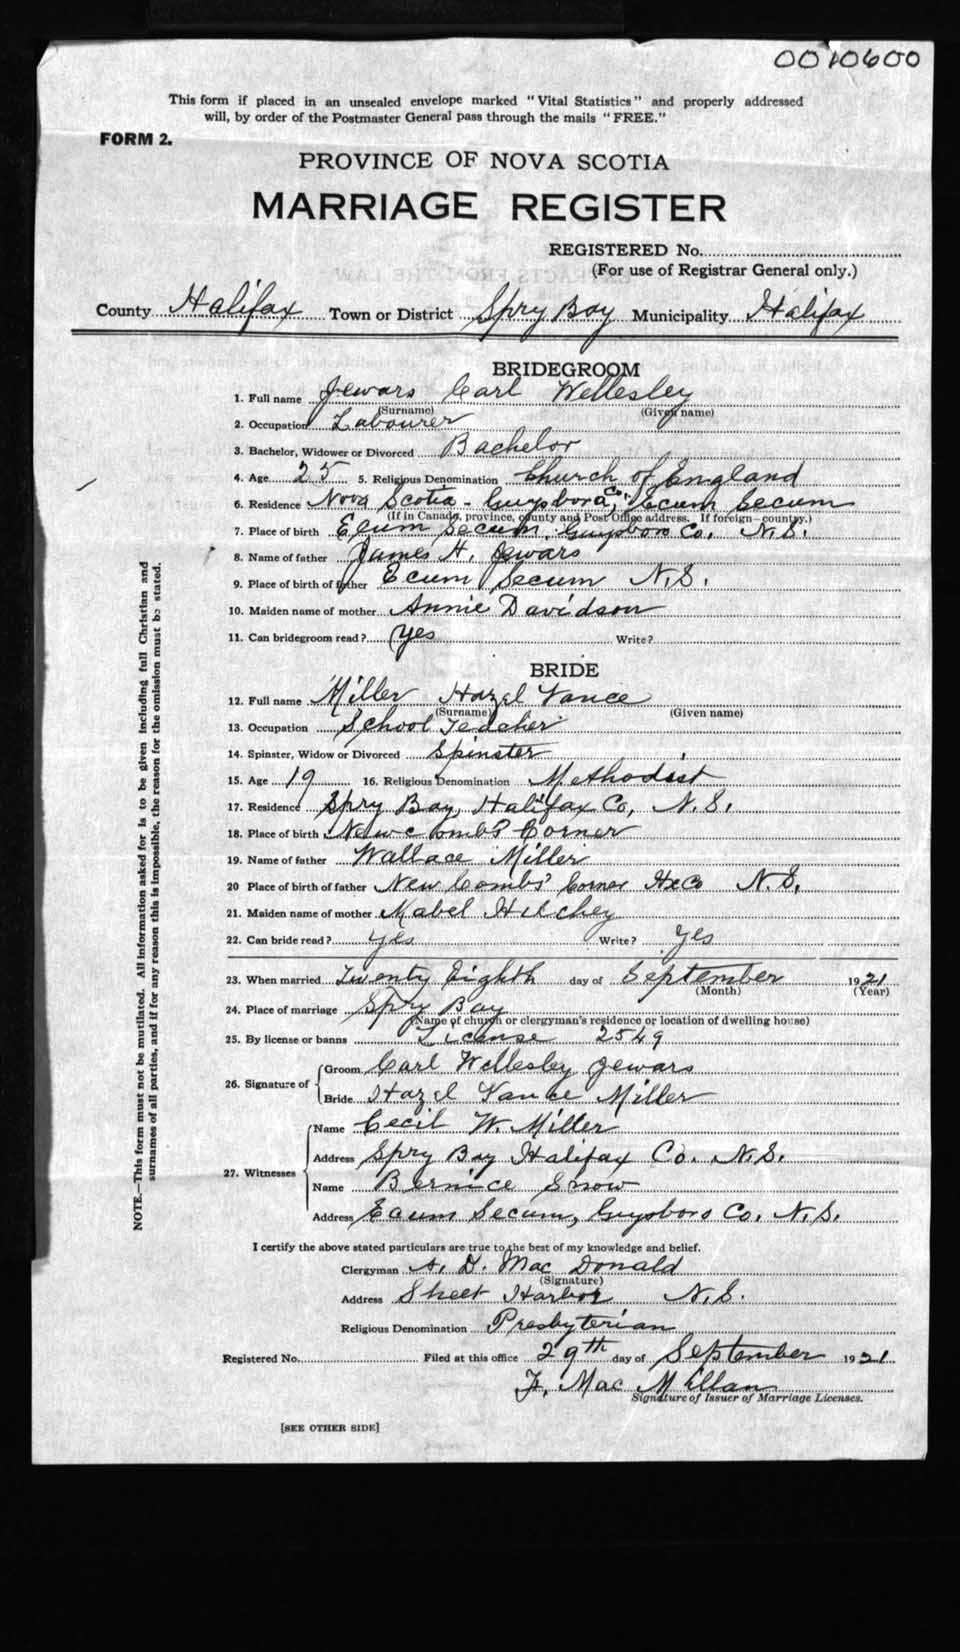 0010600
This form if placed in an unsealed envelope marked "Vital Statistics" and properly addressed
will, by order of the Postmaster General pass through the mails "FREE."
FORM 2.
PROVINCE OF NOVA SCOTIA
MARRIAGE REGISTER
REGISTERED No.
(For use of Registrar General only.)
County Halifax Town or District Spry Bay Municipality Halifax
BRIDEGROOM
1. Full name Jewars Carl Wellesley
(Surname) (Given name)
2. Occupation Labourer
3. Bachelor, Widower or Divorced Bachelor
4. Age 25 5. Religious Denomination Church of England
6. Residence Nova Scotia - Guysboro Co., Ecum Secum
(If in Canada, province, county and Post Office address. If foreign—country.)
7. Place of birth Ecum Secum, Guysboro Co. N.S.
8. Name of father James H. Jewars
9. Place of birth of father Ecum Secum N.S.
10. Maiden name of mother Annie Davidson
11. Can bridegroom read? Yes Write?
BRIDE
12. Full name Miller Hazel Vance
(Surname) (Given name)
13. Occupation School Teacher
14. Spinster, Widow or Divorced Spinster
15. Age 19 16. Religious Denomination Methodist
17. Residence Spry Bay, Halifax Co, N.S.
18. Place of birth Newcombs Corner
19. Name of father Wallace Miller
20 Place of birth of father New Combs' Corner Hx Co N.S.
21. Maiden name of mother Mabel Hilchey
22. Can bride read? yes Write? yes
23. When married Twenty Eighth day of September 1921
(Month) (Year)
24. Place of marriage Spry Bay
(Name of church or clergyman's residence or location of dwelling house)
25. By license or banns License 2549
26. Signature of Groom Carl Wellesley Jewars
Bride Hazel Vance Miller
27. Witnesses Name Cecil W. Miller
Address Spry Bay Halifax Co. N.S.
Name Bernice Snow
Address Ecum Secum, Guysboro Co. N.S.
I certify the above stated particulars are true to the best of my knowledge and belief.
Clergyman A. D. Mac Donald
(Signature)
Address Sheet Harbor N.S.
Religious Denomination Presbyterian
Registered No. Filed at this office 29th day of September 1921
F. Mac Millan
Signature of Issuer of Marriage Licenses.
[SEE OTHER SIDE]
NOTE.—This form must not be mutilated. All information asked for is to be given including full Christian and
surnames of all parties, and if for any reason this is impossible, the reason for the omission must be stated.